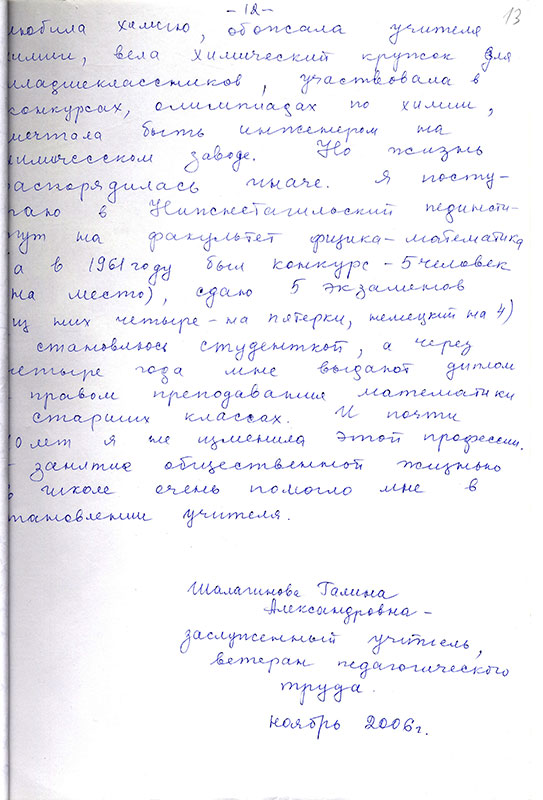 -12-
13
любила химию, обожала учителя
химии, вела химический кружок для
младшеклассников, участвовала в
конкурсах, олимпиадах по химии,
мечтала быть инженером на
химическом заводе. Но жизнь
распорядилась иначе. Я посту-
паю в Нижнетагильский пединсти-
тут на факультет физика-математика
(а в 1961 году был конкурс - 5 человек
на место), сдаю 5 экзаменов
(из них четыре - на пятерки, немецкий на 4)
становлюсь студенткой, а через
четыре года мне выдают диплом
с правом преподавания математики
в старших классах. И почти
0 лет я не изменила этой профессии.
занятие общественной жизнью
в школе очень помогло мне в
становлении учителя.
Шалагинова Галина
Александровна -
заслуженный учитель,
ветеран педагогического
труда.
ноябрь 2006г.